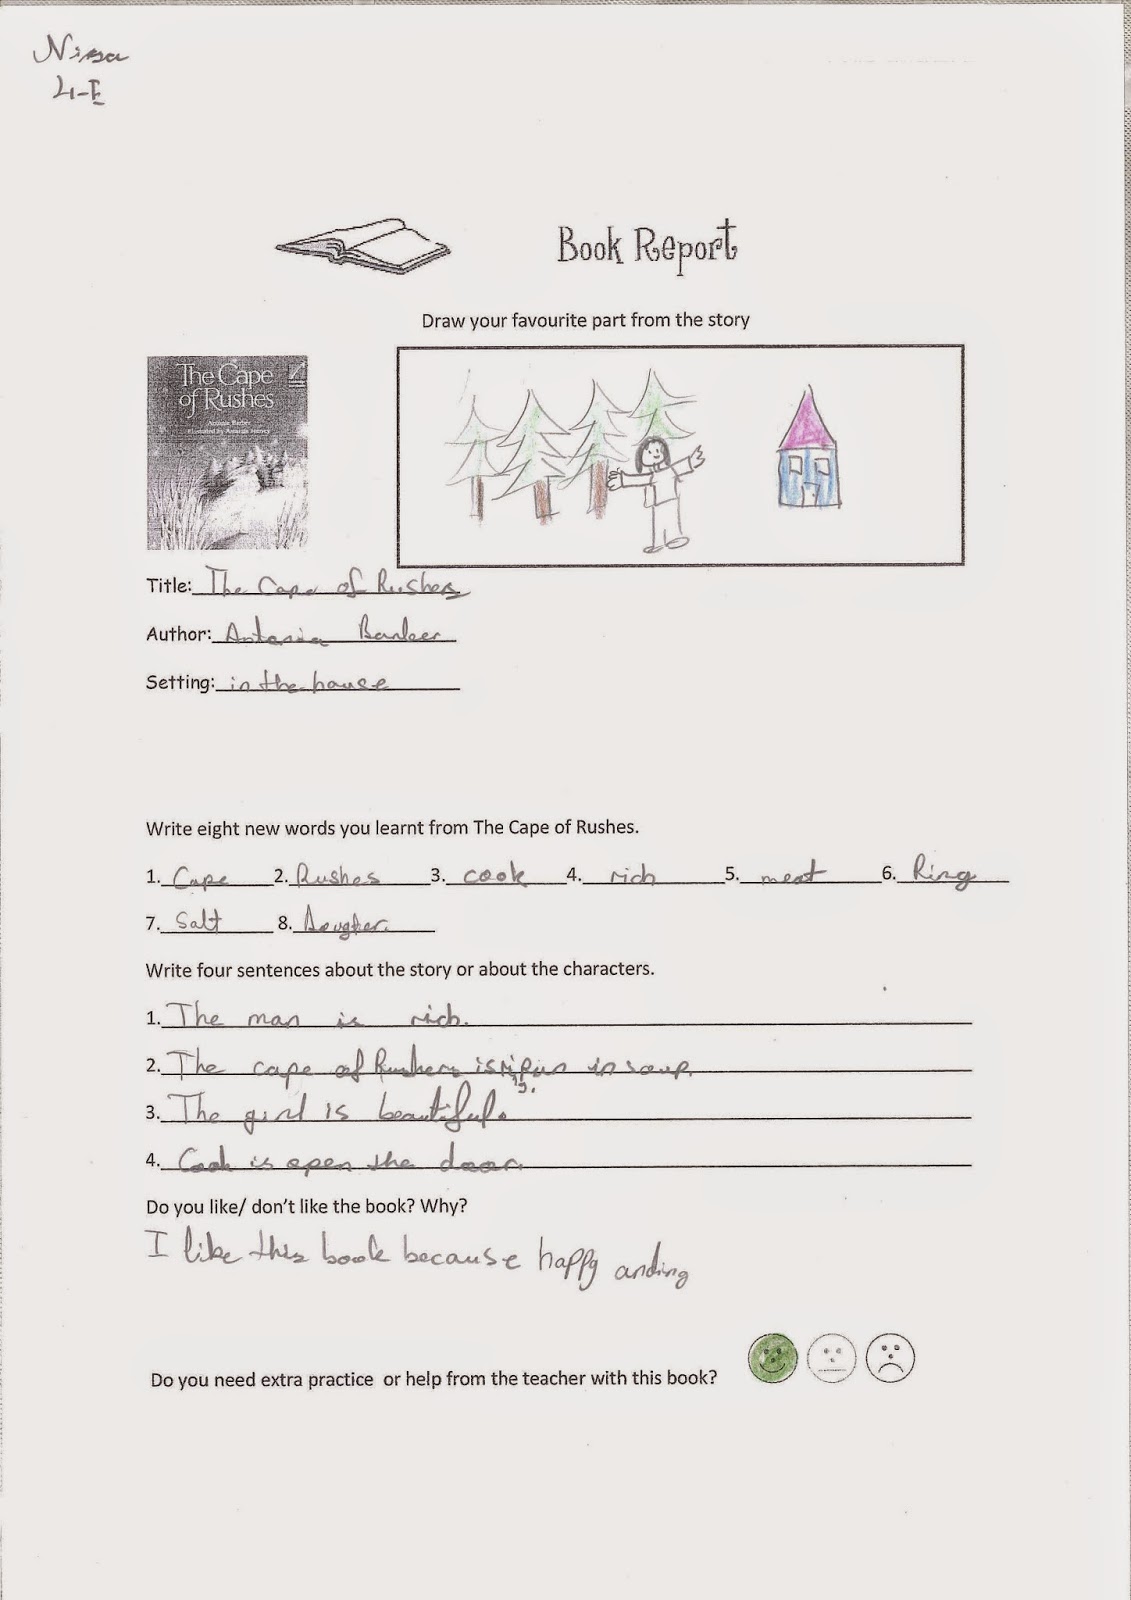 Nisa
4-E
Book Report
Draw your favourite part from the story
The Cape
of Rushes
Antonia Barber
Title: The Cape of Rushes
Author: Antonia Barber
Setting: in the house
Write eight new words you learnt from The Cape of Rushes.
1. Cape 2. Rushes 3. cook 4. rich 5. meat 6. Ring
7. Salt 8. Dougher
Write four sentences about the story or about the characters.
1. The man is rich.
2. The cape of Rushers is in soup.
3. The girl is beautiful.
4. Cook is open the door.
Do you like/ don't like the book? Why?
I like this book because happy anding
Do you need extra practice or help from the teacher with this book?